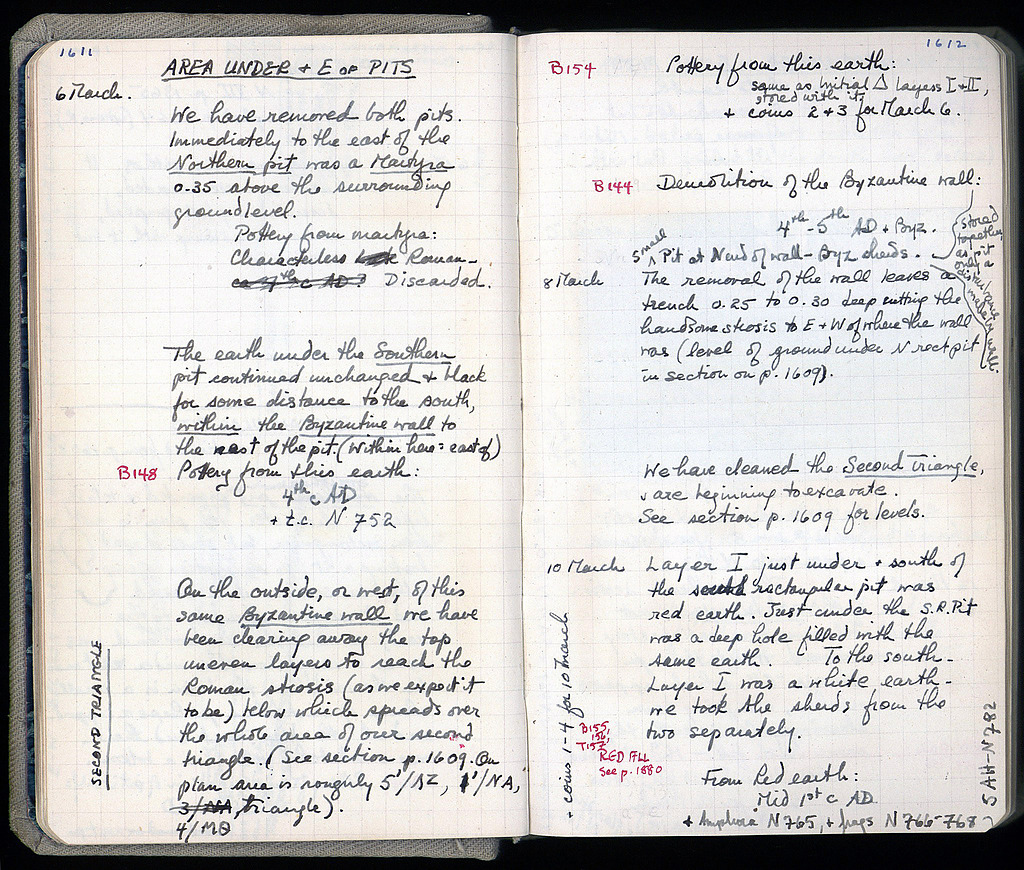 1611
AREA UNDER + E OF PITS
6 March.
We have removed both pits.
Immediately to the east of the
Northern pit was a Martyra
0.35 above the surrounding
ground level.
Pottery from martyra:
Characterless Roman-
ca 3rd c AD? Discarded.
The earth under the Southern
pit continued unchanged + black
for some distance to the south,
within the Byzantine wall to
the east of the pit. (within here = east of)
B148 Pottery from this earth:
4th c AD
+ t.c. N 752
On the outside, or west, of this
same Byzantine wall we have
been clearing away the top
uneven layers to reach the
Roman strosis (as we expect it
to be) below which spreads over
the whole area of our second
triangle. (See section p. 1609. On
plan area is roughly 5'/ΛΖ, 1'/ΝΑ,
triangle).
4/ΜΘ
SECOND TRIANGLE
1612
B154 Pottery from this earth:
same as Initial Δ layers I + II,
stored with it;
+ coins 2 + 3 for March 6.
B144 Demolition of the Byzantine wall:
4th-5th AD + Byz.
Small Pit at N end of wall - Byz sherds.
stored together, as pit a
made in wall.
8 March The removal of the wall leaves a
trench 0.25 to 0.30 deep cutting the
handsome strosis to E + W of where the wall
was (level of ground under N rect pit
in section on p. 1609).
We have cleaned the Second Triangle,
+ are beginning to excavate.
See section p. 1609 for levels.
10 March Layer I just under + south of
the south rectangular pit was
red earth. Just under the S.R. Pit
was a deep hole filled with the
same earth. To the south-
Layer I was a white earth-
we took the sherds from the
two separately.
+ coins 1-4 for 10 March
B155,
156,
T157
RED FILL
See p. 1880
From Red earth:
Mid 1st c AD
+ Amphora N765, + frags N766-768
SAH-N782